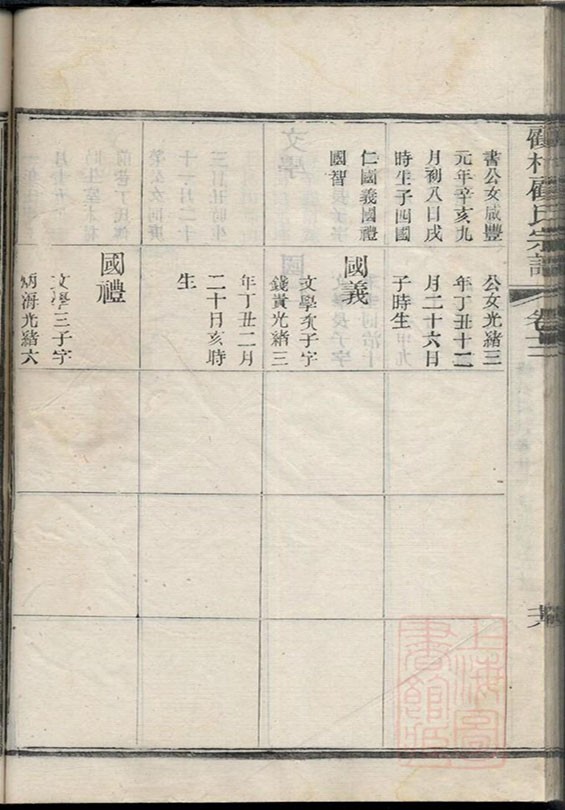 顧村顧氏宗譜
書公女咸豐
元年辛亥九
月初八日戌
時生子四國
仁國義國禮
國智
公女光緒三
年丁丑十二
月二十六日
子時生
國義
文學次子字
錢貴光緒三
年丁丑二月
二十日亥時
生
國禮
文學三子字
炳海光緒六
上海圖
書館藏